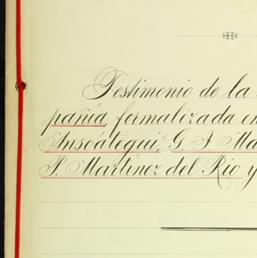 Testimonio de la
pañía, formalizada en
Insoátegui, G. I. Ma
P. Martinez del Rio y